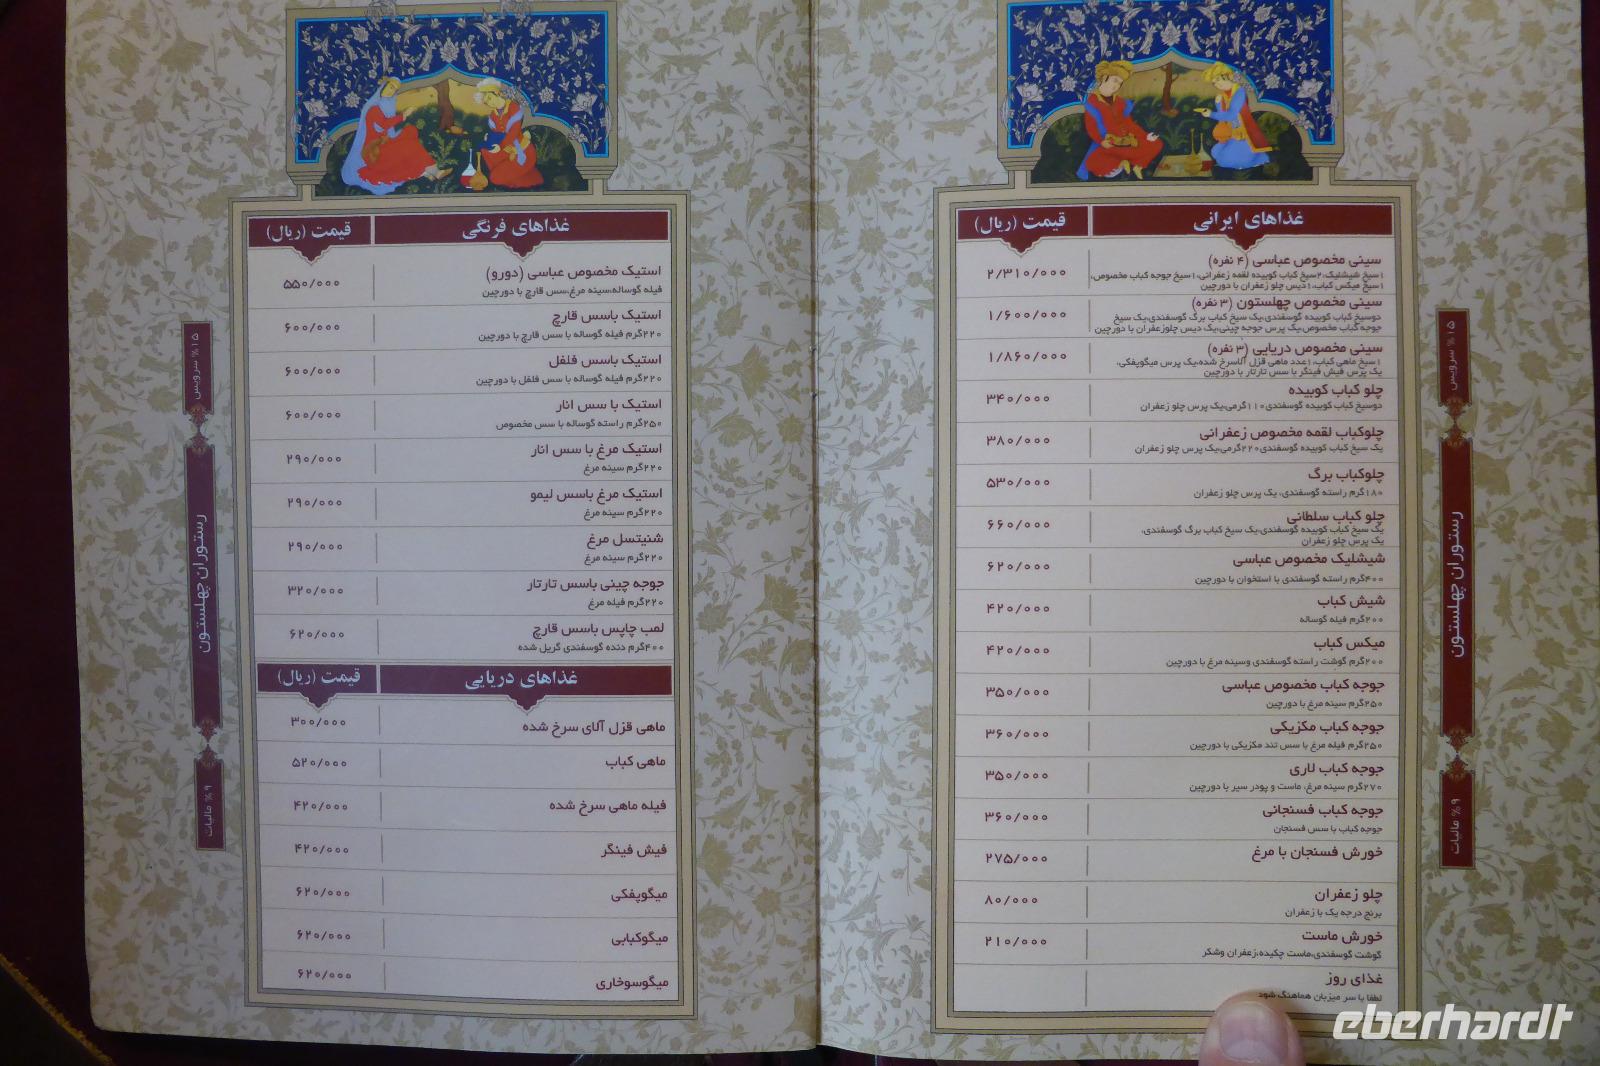 غذاهای ایرانی
قیمت (ریال)
سینی مخصوص عباسی (۴ نفره)
۲/۳۱۰/۰۰۰
۱سیخ شیشلیک،۲سیخ کباب کوبیده لقمه زعفرانی،۱سیخ جوجه کباب مخصوص،
۱سیخ میکس کباب،۱دیس چلو زعفران با دورچین
سینی مخصوص چهلستون (۳ نفره)
۱/۶۰۰/۰۰۰
دوسیخ کباب کوبیده گوسفندی،یک سیخ کباب برگ گوسفندی،یک سیخ
جوجه کباب مخصوص،یک پرس جوجه چینی،یک دیس چلوزعفران با دورچین
سینی مخصوص دریایی (۳ نفره)
۱/۸۶۰/۰۰۰
۱سیخ ماهی کباب،۱عدد ماهی قزل آلاسرخ شده،یک پرس میگوپفکی،
یک پرس فیش فینگر با سس تارتار با دورچین
چلو کباب کوبیده
۳۴۰/۰۰۰
دوسیخ کباب کوبیده گوسفندی۱۱۰گرمی،یک پرس چلو زعفران
چلوکباب لقمه مخصوص زعفرانی
۳۸۰/۰۰۰
یک سیخ کباب کوبیده گوسفندی۲۲۰گرمی،یک پرس چلو زعفران
چلوکباب برگ
۵۳۰/۰۰۰
۱۸۰گرم راسته گوسفندی، یک پرس چلو زعفران
چلو کباب سلطانی
۶۶۰/۰۰۰
یک سیخ کباب کوبیده گوسفندی،یک سیخ کباب برگ گوسفندی،
یک پرس چلو زعفران
شیشلیک مخصوص عباسی
۶۲۰/۰۰۰
۴۰۰گرم راسته گوسفندی با استخوان با دورچین
شیش کباب
۴۲۰/۰۰۰
۲۰۰گرم فیله گوساله
میکس کباب
۴۲۰/۰۰۰
۲۰۰گرم گوشت راسته گوسفندی وسینه مرغ با دورچین
جوجه کباب مخصوص عباسی
۳۵۰/۰۰۰
۲۵۰گرم سینه مرغ با دورچین
جوجه کباب مکزیکی
۳۶۰/۰۰۰
۲۵۰گرم فیله مرغ با سس تند مکزیکی با دورچین
جوجه کباب لاری
۳۵۰/۰۰۰
۲۷۰گرم سینه مرغ، ماست و پودر سیر با دورچین
جوجه کباب فسنجانی
۳۶۰/۰۰۰
جوجه کباب با سس فسنجان
خورش فسنجان با مرغ
۲۷۵/۰۰۰
چلو زعفران
۸۰/۰۰۰
برنج درجه یک با زعفران
خورش ماست
۲۱۰/۰۰۰
گوشت گوسفندی،ماست چکیده،زعفران وشکر
غذای روز
لطفا با سر میزبان هماهنگ شود
۱۵% سرویس
رستوران چهلستون
۹% مالیات
غذاهای فرنگی
قیمت (ریال)
استیک مخصوص عباسی (دورو)
۵۵۰/۰۰۰
فیله گوساله،سینه مرغ،سس قارچ با دورچین
استیک باسس قارچ
۶۰۰/۰۰۰
۲۲۰گرم فیله گوساله با سس قارچ با دورچین
استیک باسس فلفل
۶۰۰/۰۰۰
۲۲۰گرم فیله گوساله با سس فلفل با دورچین
استیک با سس انار
۶۰۰/۰۰۰
۲۵۰گرم راسته گوساله با سس مخصوص
استیک مرغ با سس انار
۲۹۰/۰۰۰
۲۲۰گرم سینه مرغ
استیک مرغ باسس لیمو
۲۹۰/۰۰۰
۲۲۰گرم سینه مرغ
شنیتسل مرغ
۲۹۰/۰۰۰
۲۲۰گرم سینه مرغ
جوجه چینی باسس تارتار
۳۲۰/۰۰۰
۲۲۰گرم فیله مرغ
لمب چاپس باسس قارچ
۶۲۰/۰۰۰
۴۰۰گرم دنده گوسفندی گریل شده
غذاهای دریایی
قیمت (ریال)
ماهی قزل آلای سرخ شده
۳۰۰/۰۰۰
ماهی کباب
۵۲۰/۰۰۰
فیله ماهی سرخ شده
۴۲۰/۰۰۰
فیش فینگر
۴۲۰/۰۰۰
میگوپفکی
۶۲۰/۰۰۰
میگوکبابی
۶۲۰/۰۰۰
میگوسوخاری
۶۲۰/۰۰۰
۱۵% سرویس
رستوران چهلستون
۹% مالیات
eberhardt